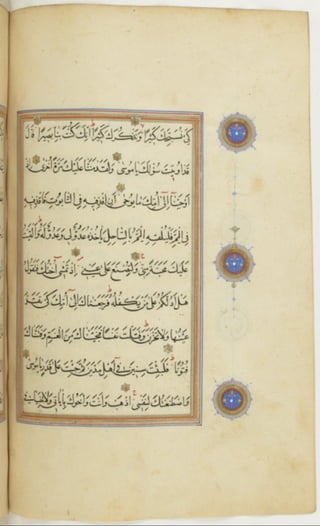 كَيْ نُسَبِّحَكَ كَثِيرًا وَنَذْكُرَكَ كَثِيرًا إِنَّكَ كُنْتَ بِنَا بَصِيرًا قَالَ
قَدْ أُوتِيتَ سُؤْلَكَ يَا مُوسَى وَلَقَدْ مَنَنَّا عَلَيْكَ مَرَّةً أُخْرَى إِذْ
أَوْحَيْنَا إِلَى أُمِّكَ مَا يُوحَى أَنِ اقْذِفِيهِ فِي التَّابُوتِ فَاقْذِفِيهِ
فِي الْيَمِّ فَلْيُلْقِهِ الْيَمُّ بِالسَّاحِلِ يَأْخُذْهُ عَدُوٌّ لِي وَعَدُوٌّ لَهُ وَأَلْقَيْتُ
عَلَيْكَ مَحَبَّةً مِنِّي وَلِتُصْنَعَ عَلَى عَيْنِي إِذْ تَمْشِي أُخْتُكَ فَتَقُولُ
هَلْ أَدُلُّكُمْ عَلَى مَنْ يَكْفُلُهُ فَرَجَعْنَاكَ إِلَى أُمِّكَ كَيْ تَقَرَّ
عَيْنُهَا وَلَا تَحْزَنَ وَقَتَلْتَ نَفْسًا فَنَجَّيْنَاكَ مِنَ الْغَمِّ وَفَتَنَّاكَ
فُتُونًا فَلَبِثْتَ سِنِينَ فِي أَهْلِ مَدْيَنَ ثُمَّ جِئْتَ عَلَى قَدَرٍ يَا مُوسَى
وَاصْطَنَعْتُكَ لِنَفْسِي اذْهَبْ أَنْتَ وَأَخُوكَ بِآيَاتِي وَلَا تَنِيَا فِي